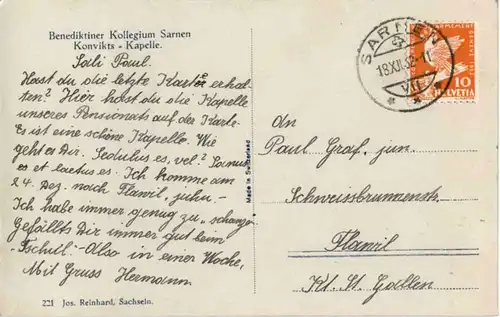 Benediktiner Kollegium Sarnen
Konvikts - Kapelle.
Sali Paul.
Hast du die letzte Karte erhal-
ten? Hier hast du die Kapelle
unseres Pensionats auf der Karte.
Es ist eine schöne Kapelle. Wie
geht es Dir. Sedulus es, vel?
es et laetus es. Ich komme am
24. Dez. nach Flawil, juhu-
Ich habe immer genug zu
Gefällts Dir immer gut beim
Also in einer Woche,
Mit Gruss Hermann.
221 Jos. Reinhard, Sachseln.
Made in Switzerland
SARNEN
18.XII.32-11
VII
10
HELVETIA
An
Paul Graf, jun.
Schweissbrunnenstr.
Flawil
Kt. St. Gallen